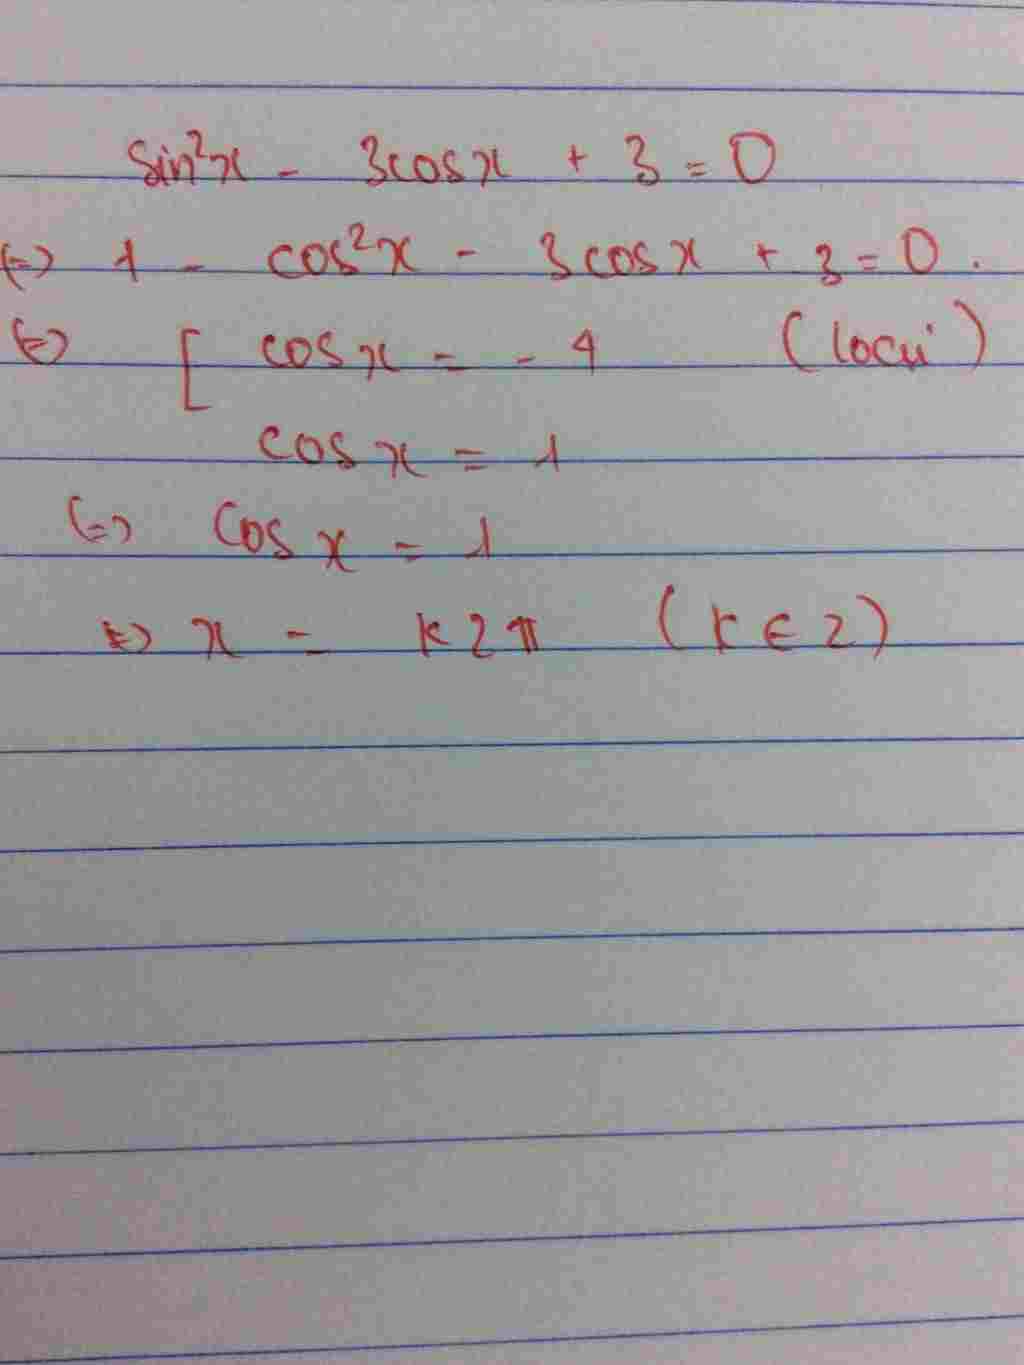 sin²x - 3cosx + 3 = 0
(=) 1 - cos²x - 3cosx + 3 = 0.
(=) [ cosx = -4 (loại)
cosx = 1
(=) cosx = 1
(=) x = k2π (k ∈ Z)